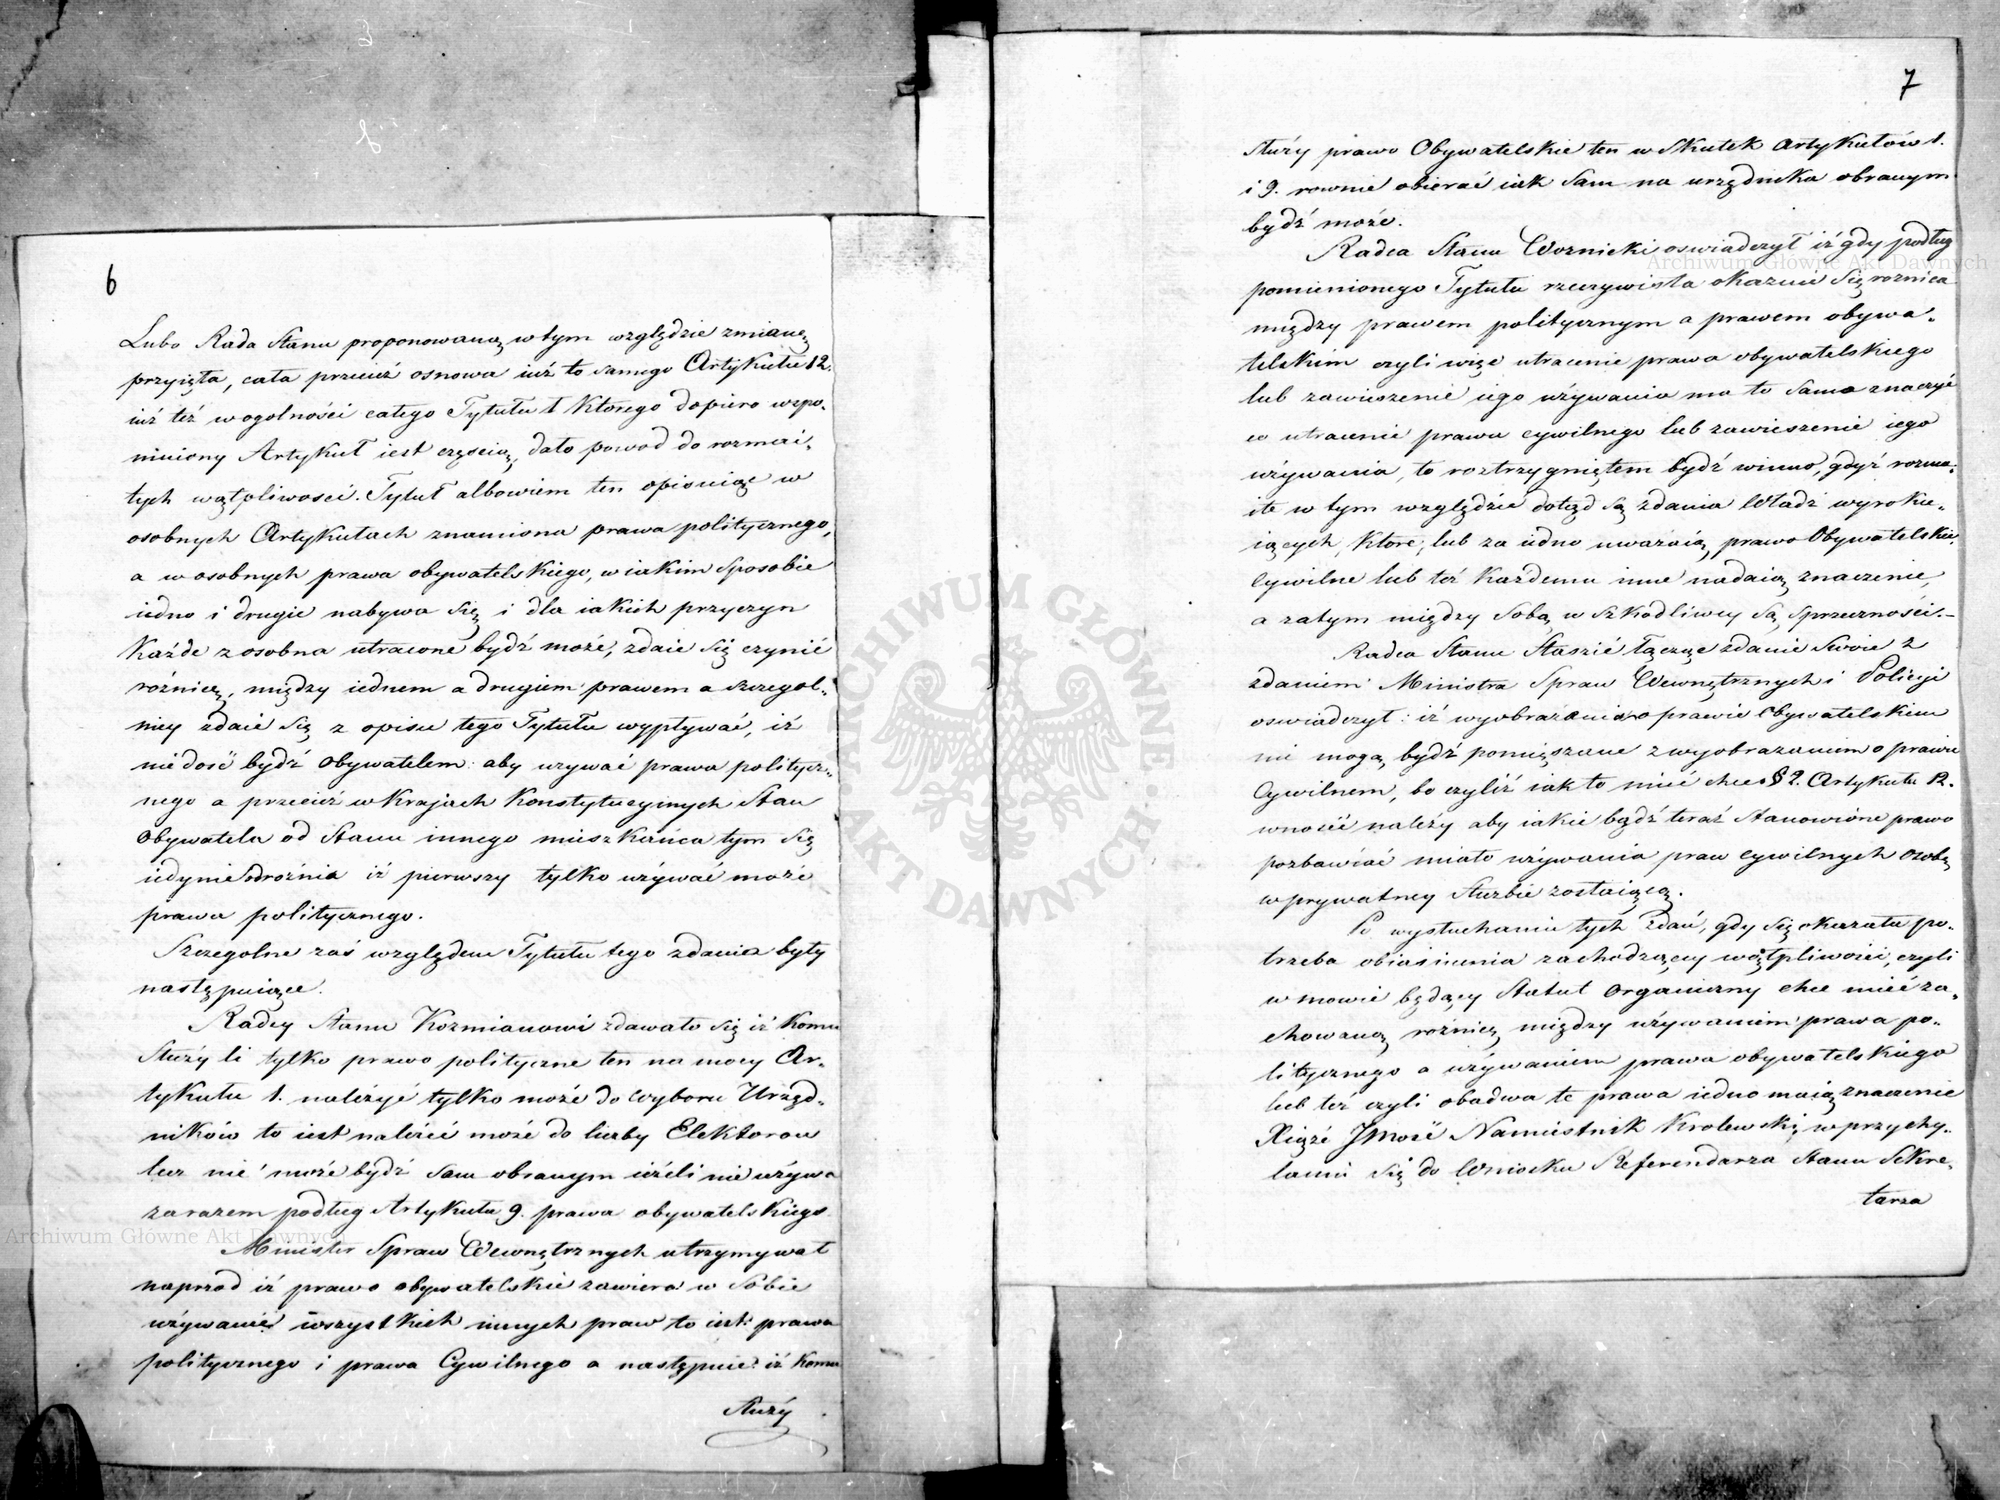 6
Lubo Rada Stanu proponowaną w tym względzie zmianę
przyięła, cała przecież osnowa iuż to samego Artykułu 12.
iuż też w ogolności całego Tytułu 1 Ktorego dopiero wspo-
mniony Artykuł iest częścią, dało powod do rozmai-
tych wątpliwości. Tytuł albowiem ten opisuiąc w
osobnych Artykułach znamiona prawa politycznego,
a w osobnych prawa obywatelskiego, w iakim sposobie
iedno i drugie nabywa się i dla iakich przyczyn
Każde z osobna utracone bydź może, zdaie się czynić
rożnicę, między iednem a drugiem prawem a szczegol-
niey zdaie się z opisu tego Tytułu wypływać, iż
niedość bydź Obywatelem: aby używać prawa politycz-
nego a przecież w Krajach Konstytucyinych Stan
Obywatela od Stanu innego mieszkańca tym się
iedynie odrożnia iż pierwszy tylko używać może
prawa politycznego.
Szczegolne zaś względem Tytułu tego zdania były
następuiące.
Radcy Stanu Kozmianowi zdawało się iż komu
służy li tylko prawo polityczne ten na mocy Ar-
tykułu 1. należyć tylko może do wyboru Urzęd-
ników to iest należeć może do liczby Elektorow
lecz nie może bydź sam obranym ieżeli nie używa
zarazem podług Artykułu 9. prawa obywatelskiego.
Minister Spraw Wewnętrznych utrzymywał
naprzod iż prawo obywatelskie zawiera w Sobie
używanie wszystkich innych praw to iest: prawa
politycznego i prawa Cywilnego a następnie: iż komu
służy
7
służy prawo Obywatelskie ten w Skutek Artykułów 1.
i 9. rownie obierać iak Sam na urzędnika obranym
bydź może.
Radca Stanu Woznicki oswiadczył iż gdy podług
pomienionego Tytułu rzeczywista okazuie się rożnica
między prawem politycznym a prawem obywa-
telskim czyli więc utracenie prawa obywatelskiego
lub zawieszenie iego używania ma to Samo znaczyć
co utracenie prawa cywilnego lub zawieszenie iego
używania, to roztrzygniętem bydź winno, gdyż rozma-
ite w tym względzie dotąd są zdania Władz wyroku-
iących, Które, lub za iedno uważaią prawo Obywatelskie,
Cywilne lub też Każdemu inne nadaią znaczenie,
a zatym między Sobą w szkodliwey są sprzeczności.—
Radca Stanu Staszic łącząc zdanie Swoie z
zdaniem Ministra Spraw Wewnętrznych i Policyi
oswiadczył: iż wyobrażenia o prawie Obywatelskiem
nie mogą bydź pomięszane z wyobrażeniem o prawie
Cywilnem, bo czyliż iak to mieć chce § 2. Artykułu 12.
wnosić należy aby iakie bądź teraz stanowione prawo
pozbawiać miało używania praw cywilnych osobę
w prywatney służbie zostaiącą.
Po wysłuchaniu tych zdań, gdy się okazała po-
trzeba obiaśnienia zachodzącey wątpliwości, czyli
w mowie będący Statut Organiczny chce mieć za-
chowaną rożnicę między używaniem prawa po-
litycznego a używaniem prawa obywatelskiego
lub też czyli obadwa te prawa iedno maią znaczenie
Xiąże JMość Namiestnik Krolewski w przychy-
laniu się do Wniosku Referendarza Stanu Sekre-
tarza
Archiwum Główne Akt Dawnych
Archiwum Główne Akt Dawnych
ARCHIWUM GŁÓWNE AKT DAWNYCH